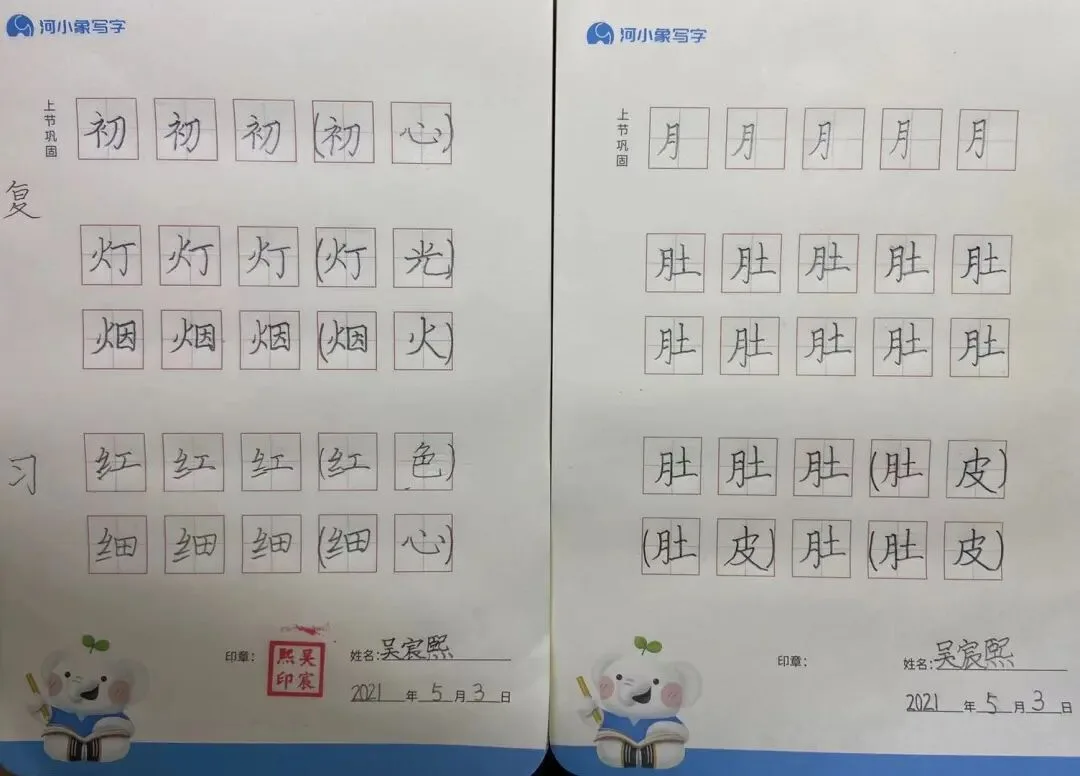 河小象写字
上节巩固
初 初 初 (初 心)
复
灯 灯 灯 (灯 光)
烟 烟 烟 (烟 火)
习
红 红 红 (红 色)
细 细 细 (细 心)
印章:
熙吴
印宸
姓名:吴宸熙
2021年5月3日
河小象写字
上节巩固
月 月 月 月 月
肚 肚 肚 肚 肚
肚 肚 肚 肚 肚
肚 肚 肚 (肚 皮)
(肚 皮) 肚 (肚 皮)
印章:
姓名:吴宸熙
2021年5月3日